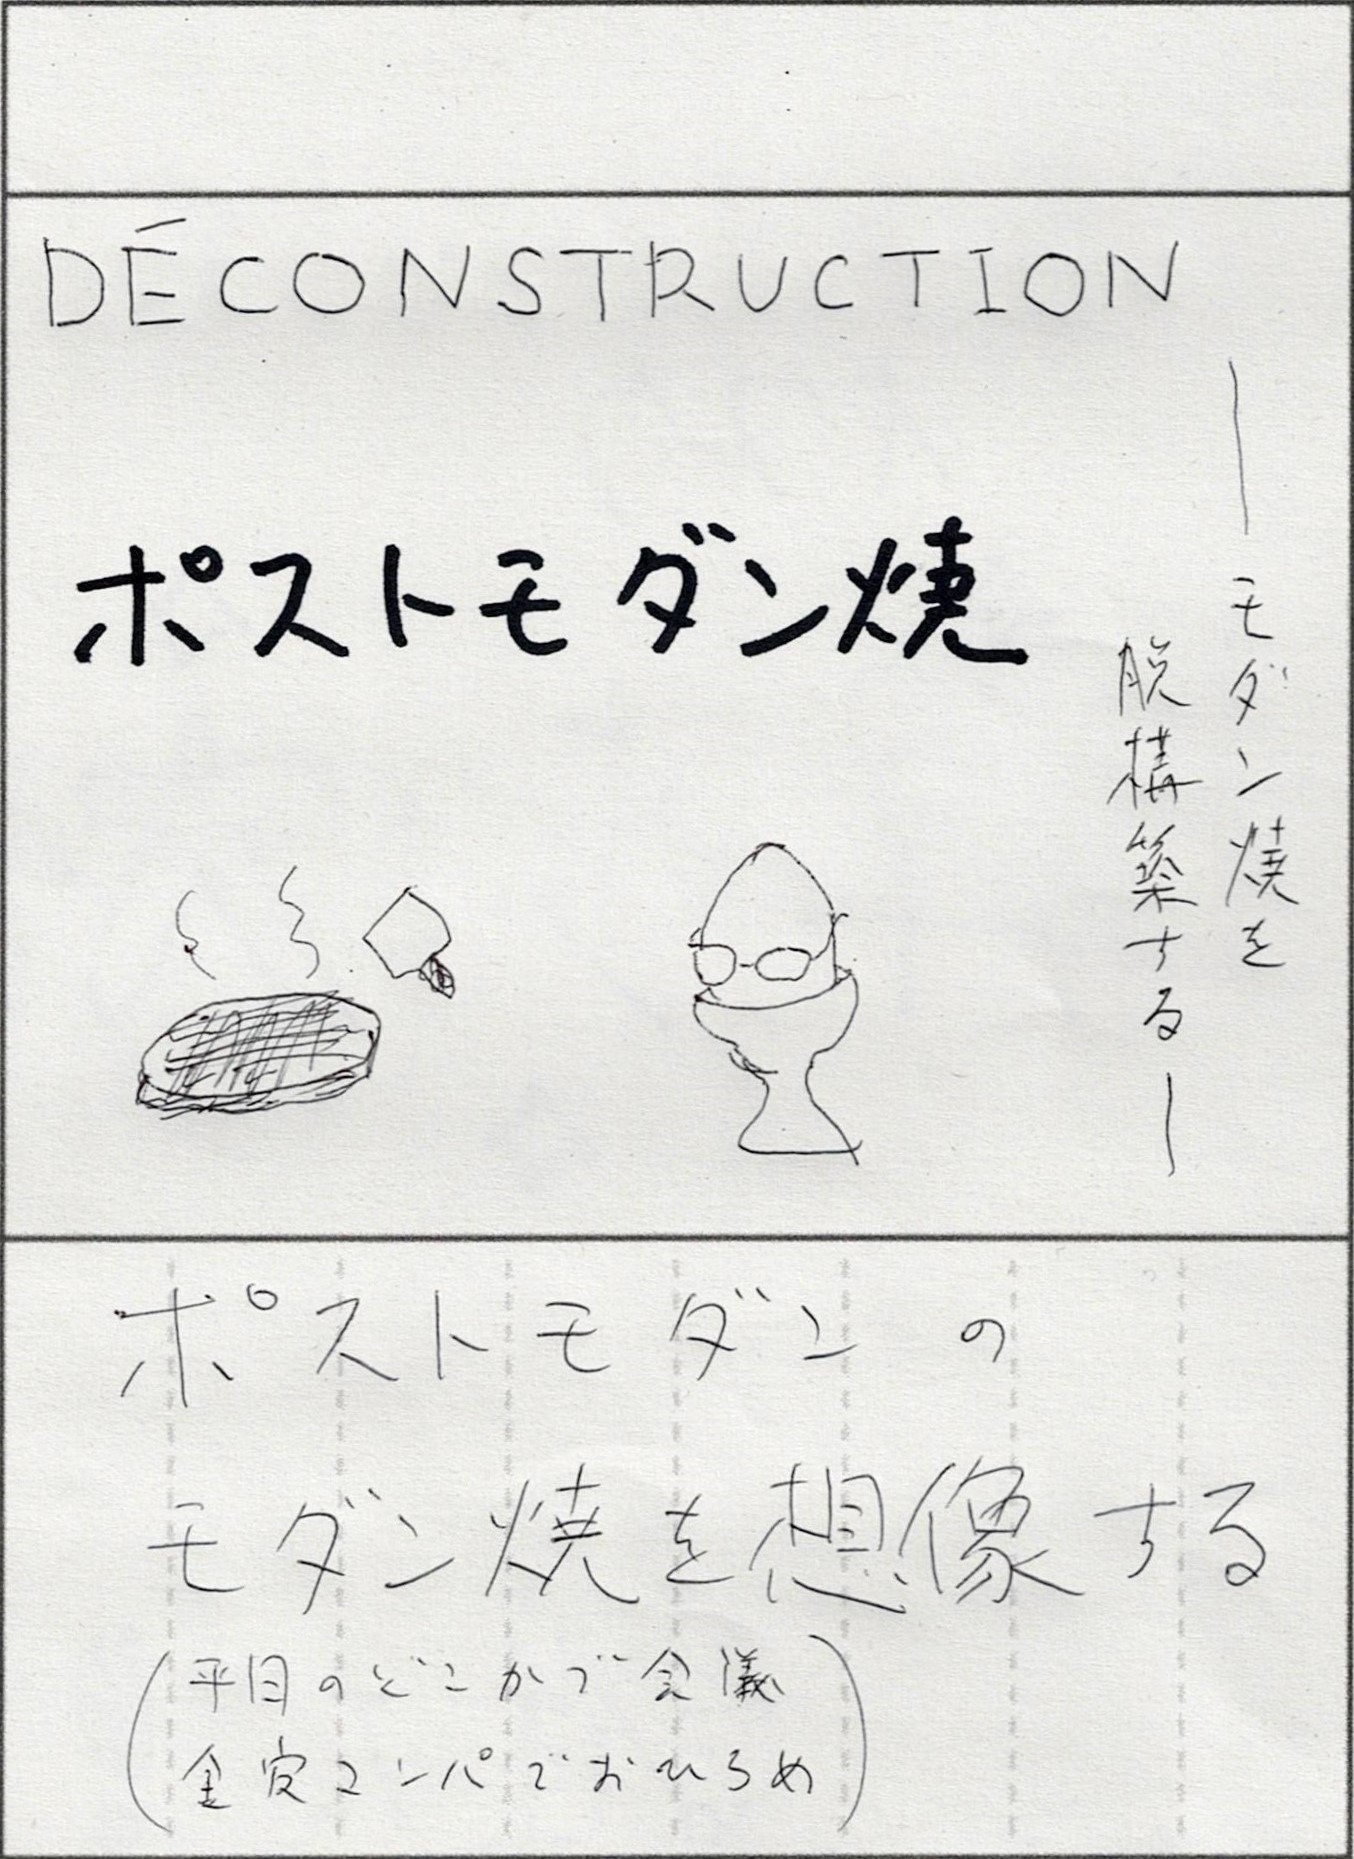 DÉCONSTRUCTION
ポストモダン焼
―モダン焼を
脱構築する―
ポストモダンの
モダン焼を想像する
(平日のどこかで会議
金定コンパでおひろめ)